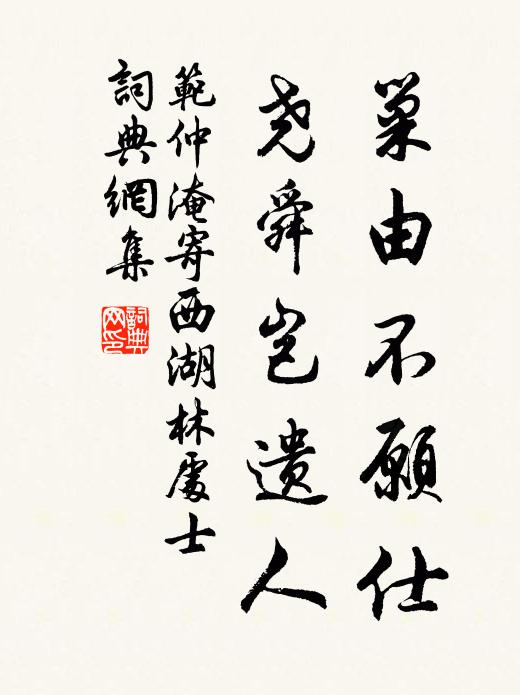 巢由不願仕
堯舜豈遺人
範仲淹寄西湖林處士
詞典網集
詞典
网印